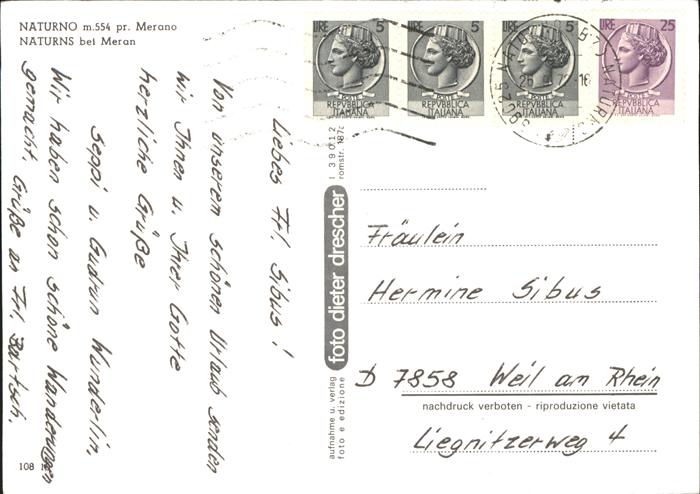 NATURNO m.554 pr. Merano
NATURNS bei Meran
Liebes Frl. Sibus!
Von unserem schönen Urlaub senden
wir Ihnen u. Ihrer Gotte
herzliche Grüße
Seppi u. Gudrun Wunderlin,
Wir haben schon schöne Wanderungen
gemacht. Grüße an Frl. Bartsch.
LIRE 5
POSTE
REPVBBLICA
ITALIANA
LIRE 5
POSTE
REPVBBLICA
ITALIANA
LIRE 5
POSTE
REPVBBLICA
ITALIANA
LIRE 25
POSTE
REPVBBLICA
ITALIANA
foto dieter drescher
I 39012
romstr. 187c
aufnahme u. verlag
foto e edizione
Fräulein
Hermine Sibus
D 7858 Weil am Rhein
nachdruck verboten - riproduzione vietata
Liegnitzerweg 4
108